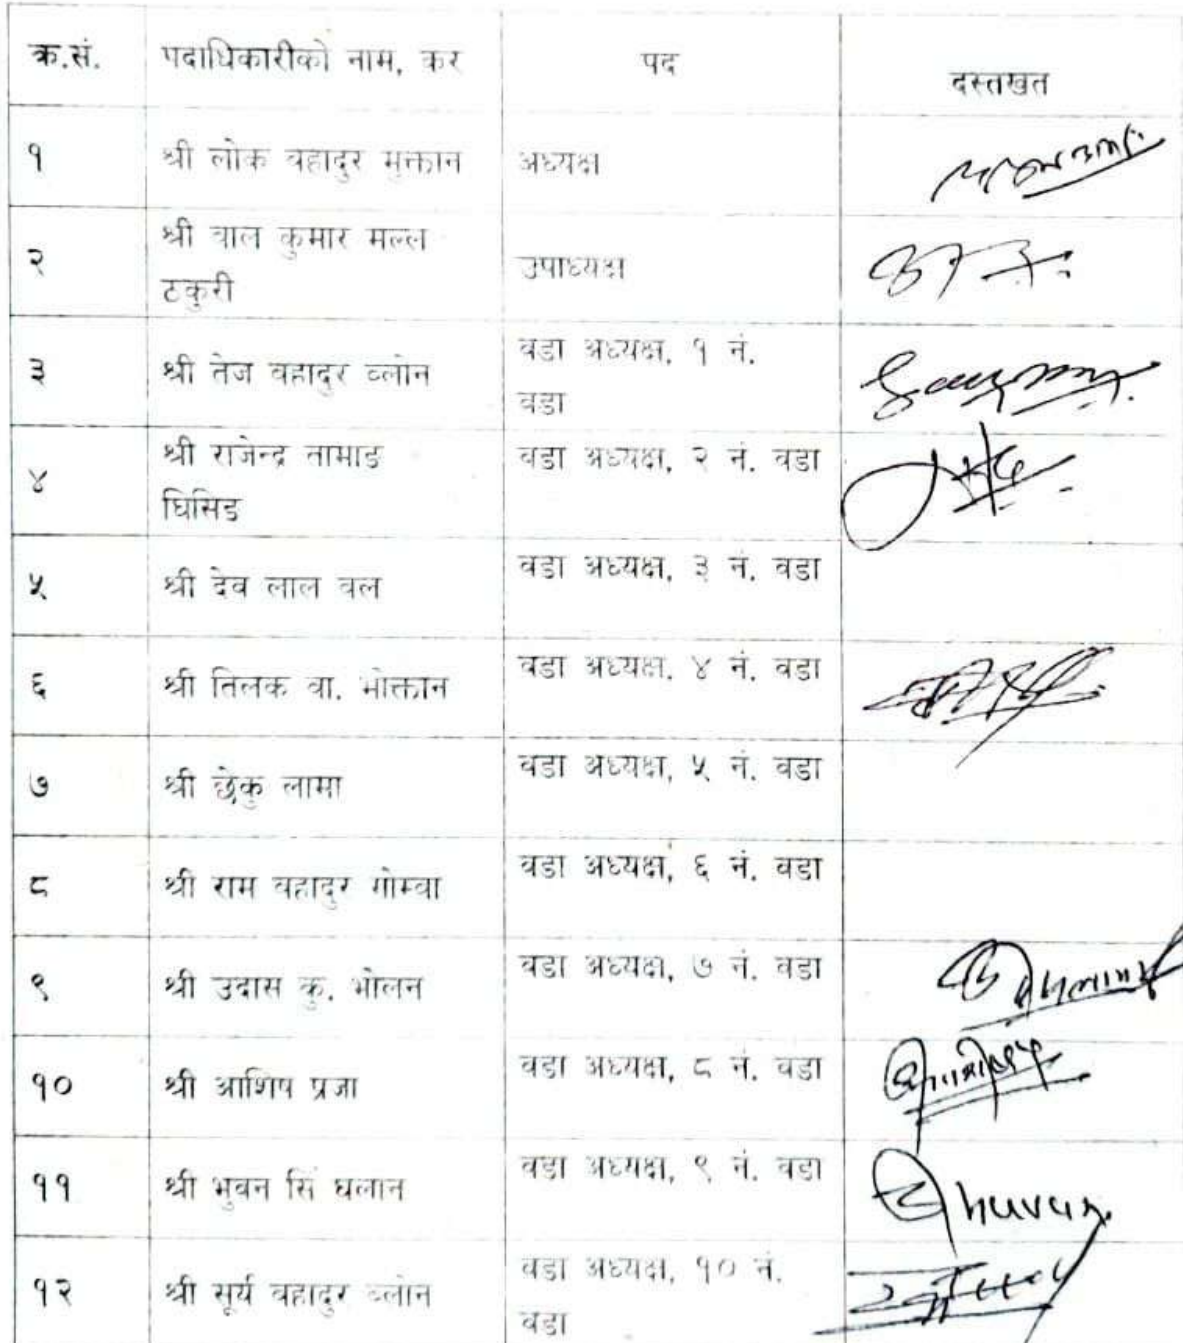 क्र.सं. पदाधिकारीको नाम, कर पद दस्तखत
१ श्री लोक वहादुर मुक्तान अध्यक्ष
२ श्री वाल कुमार मल्ल
ठकुरी उपाध्यक्ष
३ श्री तेज वहादुर ब्लोन वडा अध्यक्ष, १ नं.
वडा
४ श्री राजेन्द्र तामाङ
घिसिङ वडा अध्यक्ष, २ नं. वडा
५ श्री देव लाल वल वडा अध्यक्ष, ३ नं. वडा
६ श्री तिलक वा. मोक्तान वडा अध्यक्ष, ४ नं. वडा
७ श्री छेकु लामा वडा अध्यक्ष, ५ नं. वडा
८ श्री राम वहादुर गोम्वा वडा अध्यक्ष, ६ नं. वडा
९ श्री उदास कु. भोलन वडा अध्यक्ष, ७ नं. वडा
१० श्री आशिष प्रजा वडा अध्यक्ष, ८ नं. वडा
११ श्री भुवन सिं घलान वडा अध्यक्ष, ९ नं. वडा
Bhuvan
१२ श्री सूर्य वहादुर ब्लोन वडा अध्यक्ष, १० नं.
वडा